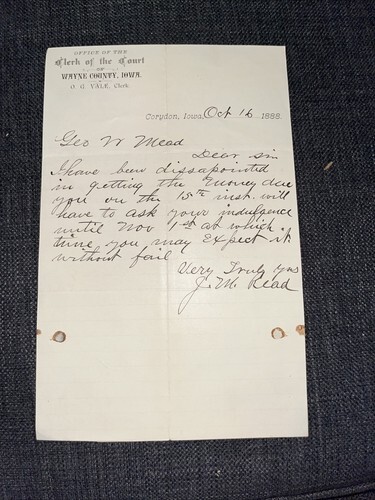 OFFICE OF THE
Clerk of the Court
OF
WAYNE COUNTY, IOWA.
O. G. VALE, Clerk.
Corydon, Iowa, Oct 16 1888.
Geo W Mead
Dear sir
I have been dissapointed
in getting the money due
you on the 15th inst. will
have to ask your indulgence
until Nov 1st at which
time you may Expect it
without fail
Very Truly yrs
J. M. Read